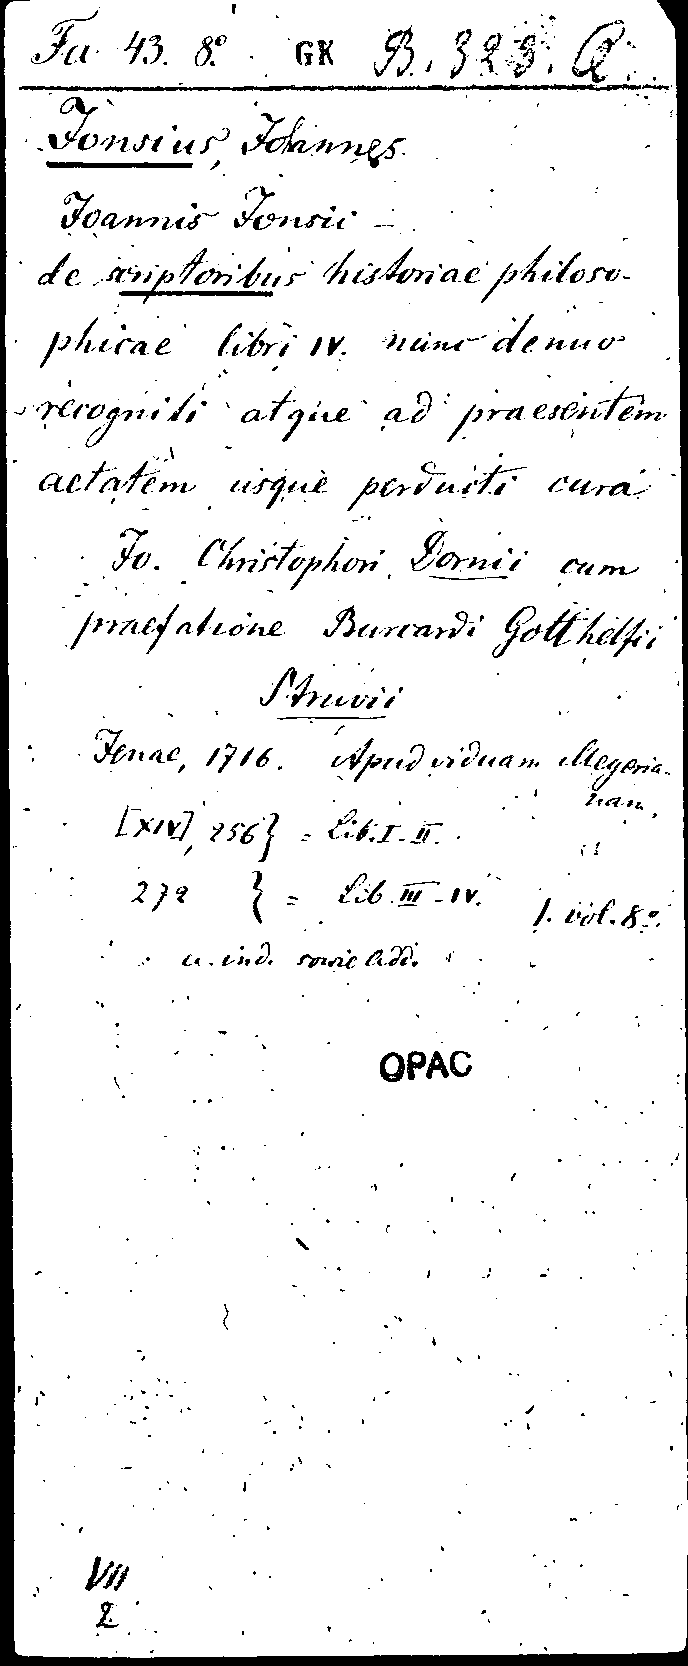 Fa 43. 8°. GK B. 323. Q.
Jonsius, Johannes
Joannis Jonsii –
de scriptoribus historiae philoso-
phicae libri IV. nunc denuo
recogniti atque ad praesentem
aetatem usque perducti cura
Jo. Christophori Dornii cum
praefatione Burcardi Gotthelfii
Struvii
Jenae, 1716. Apud viduam Meyeria-
nam.
[XIV], 256} = Lib. I-II.
272 } = Lib. III-IV. 1. vol. 8°.
u. ind. sowie Add.
OPAC
VII
2